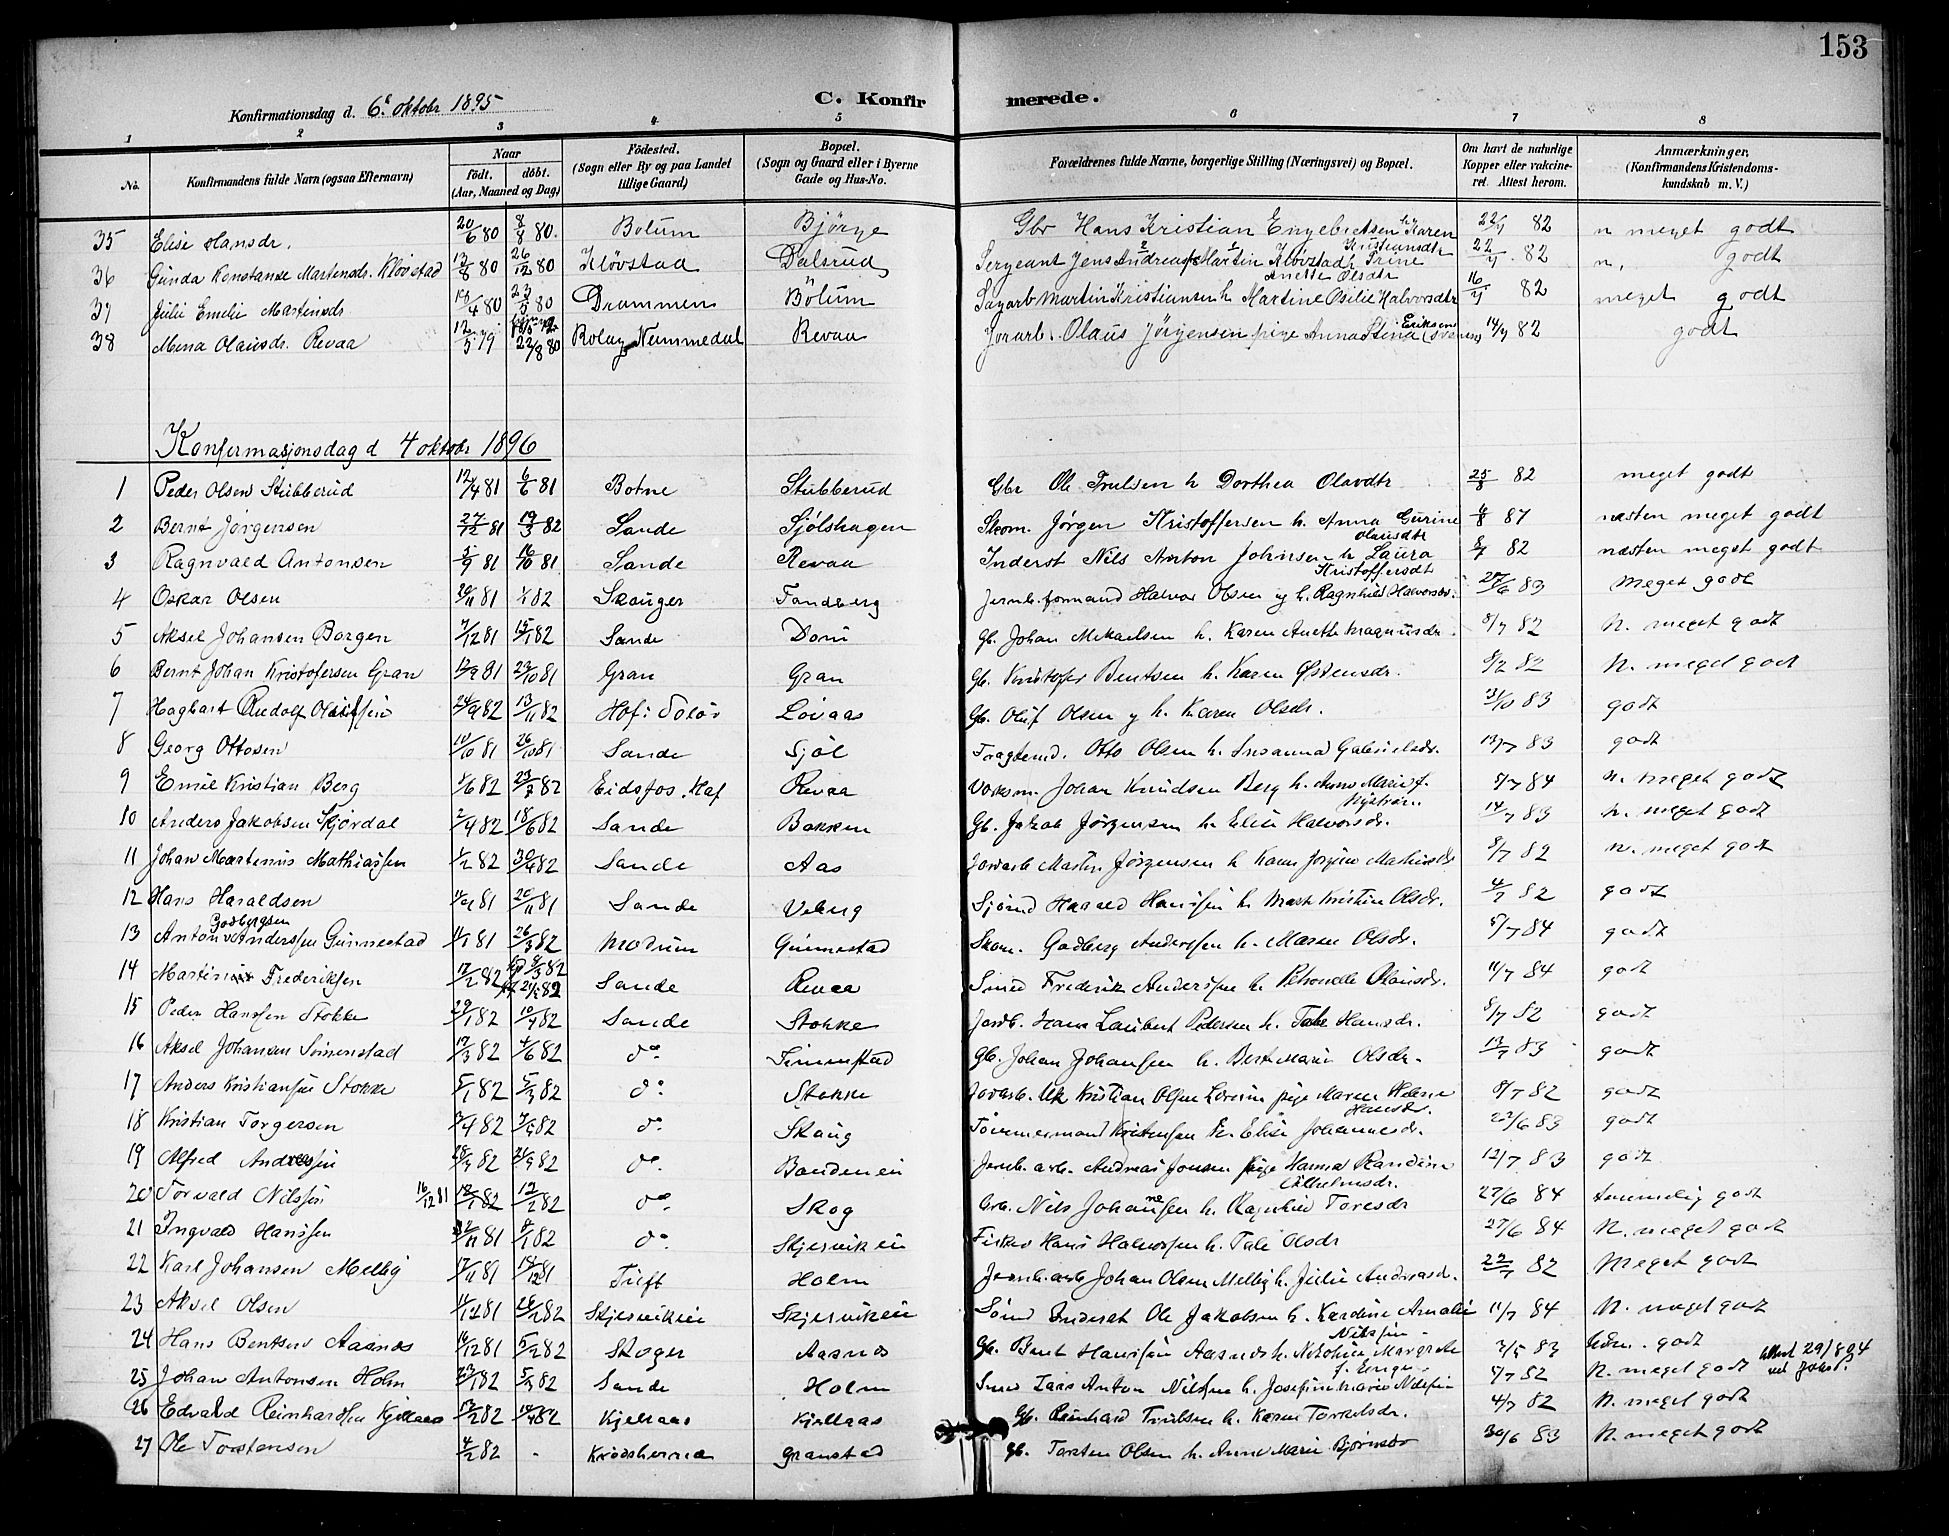 153
Konfirmationsdag d. 6te oktobr 1895
C. Konfirmerede.
1 2 3 4 5 6 7 8
No. Konfirmandens fulde Navn (ogsaa Efternavn) Naar födt. döbt. (Aar, Maaned og Dag) Födested. (Sogn eller By og paa Landet tillige Gaard) Bopæl. (Sogn og Gaard eller i Byerne Gade og Hus-No. Forældrenes fulde Navne, borgerlige Stilling (Næringsvei) og Bopæl. Om havt de naturlige Kopper eller vakcineret. Attest herom. Anmærkninger. (Konfirmandens Kristendomskundskab m. V.)
35 Elise Hansdr. 20/6 80 8/8 80. Bolum Bjørge Gbr Hans Kristian Engebretsen h Karen Kristiansdtr 22/7 82 n meget godt
36 Gunda Konstanse Martensdr. Kløvstad 12/8 80 26/12 80 Kløvstad Dalsrud Sergeant Jens Andreas Martin Kløvstad h Trine Anette Olsdtr 22/7 82 n. godt
37 Julie Emelie Martinsdr 18/4 80 23/5 80 Drammen Bölum Sagarb Martin Kristiansen h Martine Osilie Halvorsdtr 16/7 82 meget godt
38 Mina Olausdr. Revaa 12/5 79 22/8 80 Rolag Nummedal Revaa Jorarb. Olaus Jörgensen pige Anna Stina Eriksen (svensk) 14/7 82 godt
Konfermasjonsdag d 4 oktobr 1896
1 Peder Olsen Stubberud 12/4 81 6/6 81 Botne Stubberud Gbr Ole Trulsen h Dorthea Olavdtr 25/8 82 meget godt
2 Bernt Jørgensen 27/12 81 19/3 82 Sande Sjølshagen Skom. Jørgen Kristoffersen h. Anna Gurine Olausdtr 4/8 87 næsten meget godt
3 Ragnvald Antonsen 5/9 81 16/10 81 Sande Revaa Inderst Nils Anton Johnsen h Laura Kristoffersdt 8/7 82 næsten meget godt
4 Oskar Olsen 20/11 81 1/1 82 Skouger Fandberg Jernb. formand Halvor Olsen og h. Ragnhild Halvorsdr. 27/6 83 Meget godt
5 Aksel Johansen Borgen 7/12 81 15/1 82 Sande Dorn Gb. Johan Mikaelsen h. Karen Anette Magnusdr. 8/7 82 N. meget godt
6 Bernt Johan Kristofersen Gran 12/9 81 23/10 81 Gran Gran Gb. Kristofer Bentsen h. Karen Østensdr. 8/2 82 N. meget godt
7 Hagbart Rudolf Olufsen 24/9 82 13/11 82 Hof i Solør Løvaas Gb. Oluf Olsen og h. Karen Olsdr. 31/10 83 godt
8 Georg Ottosen 10/10 81 26/10 81 Sande Sjøl Fragtemd. Otto Olsen h. Susanna Gabrielsdr. 13/7 83 godt
9 Emil Kristian Berg 1/6 82 23/7 82 Eidsfos. Hof Revaa Voksm. Johan Knudsen Berg h. Anna Marie f. Nystrøm. 8/7 84 n. meget godt
10 Anders Jakobsen Skjørdal 2/4 82 18/6 82 Sande Bakken Gb. Jakob Jørgensen h. Elise Halvorsdr. 14/7 83 n. meget godt
11 Johan Martenius Mathiassen 1/2 82 30/4 82 Sande Aas Jordarb Martin Jørgensen h Karen Jørgine Mathiasdr 8/7 82 n. meget godt
12 Hans Haraldsen 81 20/11 81 Sande Veberg Sjømd Harald Hanssen h. Marte Kristine Olsdr. 4/7 82 godt
13 Anton Godbergsen Anderssen Gunnestad 11/1 81 26/3 82 Modum Gunnestad Skom. Godberg Anderssen h. Maren Olsdr. 5/7 84 godt
14 Martin Frederiksen 17/2 82 8/3 82 Sande Revaa Smed Frederik Anderssen h. Petronelle Olausdr. 11/7 84 godt
15 Peder Hanssen Stokke 29/1 82 10/4 82 Sande Stokke Jordb. Hans Laubert Pedersen h. Tale Hansdr. 8/7 82 godt
16 Aksel Johansen Simenstad 17/3 82 4/6 82 do. Simenstad Gb. Johan Johanssen h. Bert Marie Olsdr. 13/7 83 godt
17 Anders Kristiansen Stokke 5/1 82 5/3 82 do. Stokke Jordarb. Uk Kristian Olsen pige Maren Helene Hansdr. 8/7 82 godt
18 Kristian Torgersen 82 82 do. Skaug Tømmermand Kristensen h. Elise Johannesdr. 22/6 83 godt
19 Alfred Andreassen 28/7 82 24/9 82 do. Baudeneie Jernb. arb. Andreas Jonsen pige Hanna Randine Vilhelmsdr. 12/7 83 godt
20 Torvald Nilssen 16/12 81 12/1 82 12/2 82 do. Skog Grb. Nils Johannesen h. Ragnhild Toresdr 27/6 84 temmelig godt
21 Ingvald Hanssen 81 8/1 82 do. Skjervikeie Fisker Hans Halvorsen h. Tale Olsdr 27/6 84 N. meget godt
22 Karl Johansen Melby 17/11 81 81 Tuft Holm Jernb. arb Johan Olsen Melby h. Julie Andreasdr. 22/7 82 Meget godt
23 Aksel Olsen 11/12 81 26/2 82 Skjervikeie Skjervikeie Sømd Inderst Ole Jakobsen h. Kardine Amalie Nilssen 11/7 84 N. meget godt
24 Hans Bentsen Aasnes 16/12 81 5/2 82 Skoger Aasnes Gb. Bent Hanssen Aasnes h. Nikoline Margrete f. Enger. 3/5 83 tem. godt
25 Johan Antonsen Holm 23/1 82 5/3 82 Sande Holm Smed Lars Anton Nilsen h. Josefine Marie Nilsen 5/7 82 N. meget godt
26 Edvald Reinhardsen Kjellaas 13/2 82 82 Kjellaas Kjellaas Gb. Reinhard Trulsen h. Karen Torkelsdr. 4/7 82 N. meget godt
27 Ole Torstensen 4/2 82 - Krødsherred Granstad Gb. Torsten Olsen h. Anne Marie Bjørnsdr 30/6 83 N. meget godt